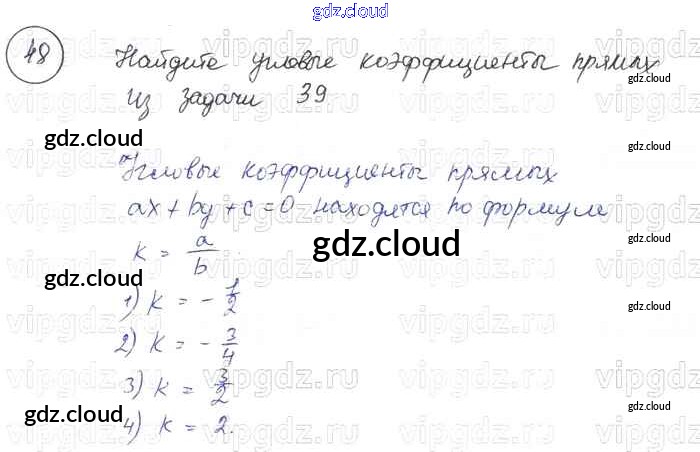 gdz.cloud
48 Найдите угловые коэффициенты прямых
из задачи 39
gdz.cloud
Угловые коэффициенты прямых
ax + by + c = 0 находятся по формуле
gdz.cloud
k = a/b
gdz.cloud
1) k = - 1/2
gdz.cloud
2) k = - 3/4
3) k = 3/2
gdz.cloud
gdz.cloud
4) k = 2.
vipgdz.ru